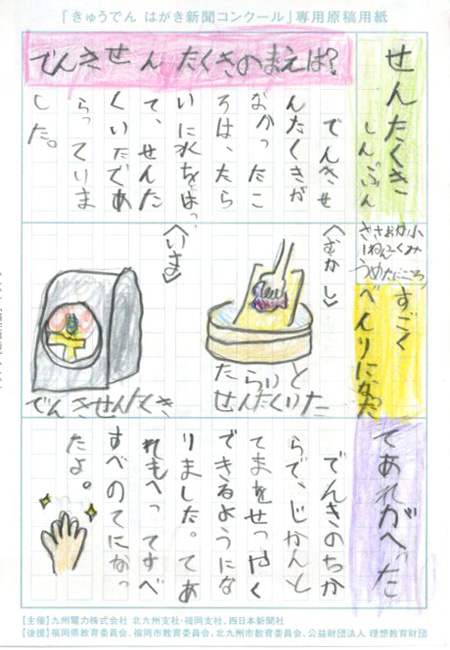 「きゅうでん はがき新聞コンクール」専用原稿用紙
せんたくき
しんぶん
でんきせんたくきのまえは?
でんきせ
んたくきが
なかったこ
ろは、たら
いに水をはっ
て、せんた
くいたであ
らっていま
した。
ささおか小
1ねん二くみ
すごく
べんりになった
〈むかし〉
たらいと
せんたくいた
〈いま〉
でんきせんたくき
てあれがへった
でんきのちか
らで、じかんと
てまをせつやく
できるようにな
りました。てあ
れもへってすべ
すべのてになっ
たよ。
【主催】九州電力株式会社 北九州支社・福岡支社、西日本新聞社
【後援】福岡県教育委員会、福岡市教育委員会、北九州市教育委員会、公益財団法人 理想教育財団